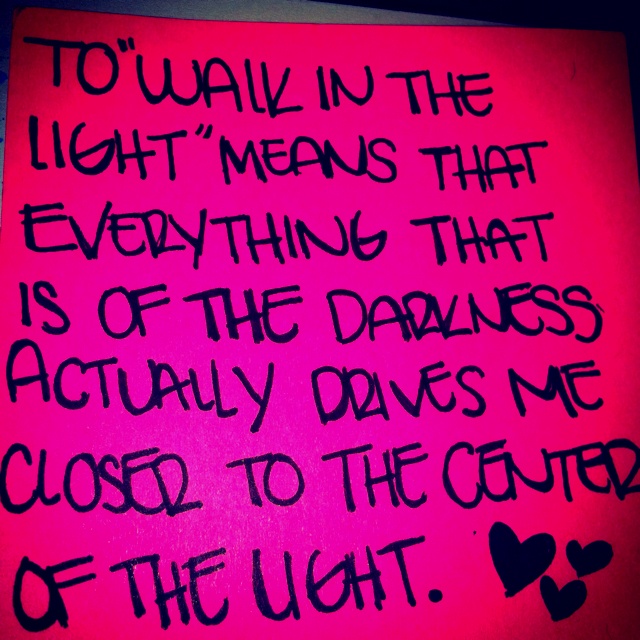 TO "WALK IN THE
LIGHT" MEANS THAT
EVERYTHING THAT
IS OF THE DARKNESS
ACTUALLY DRIVES ME
CLOSER TO THE CENTER
OF THE LIGHT.